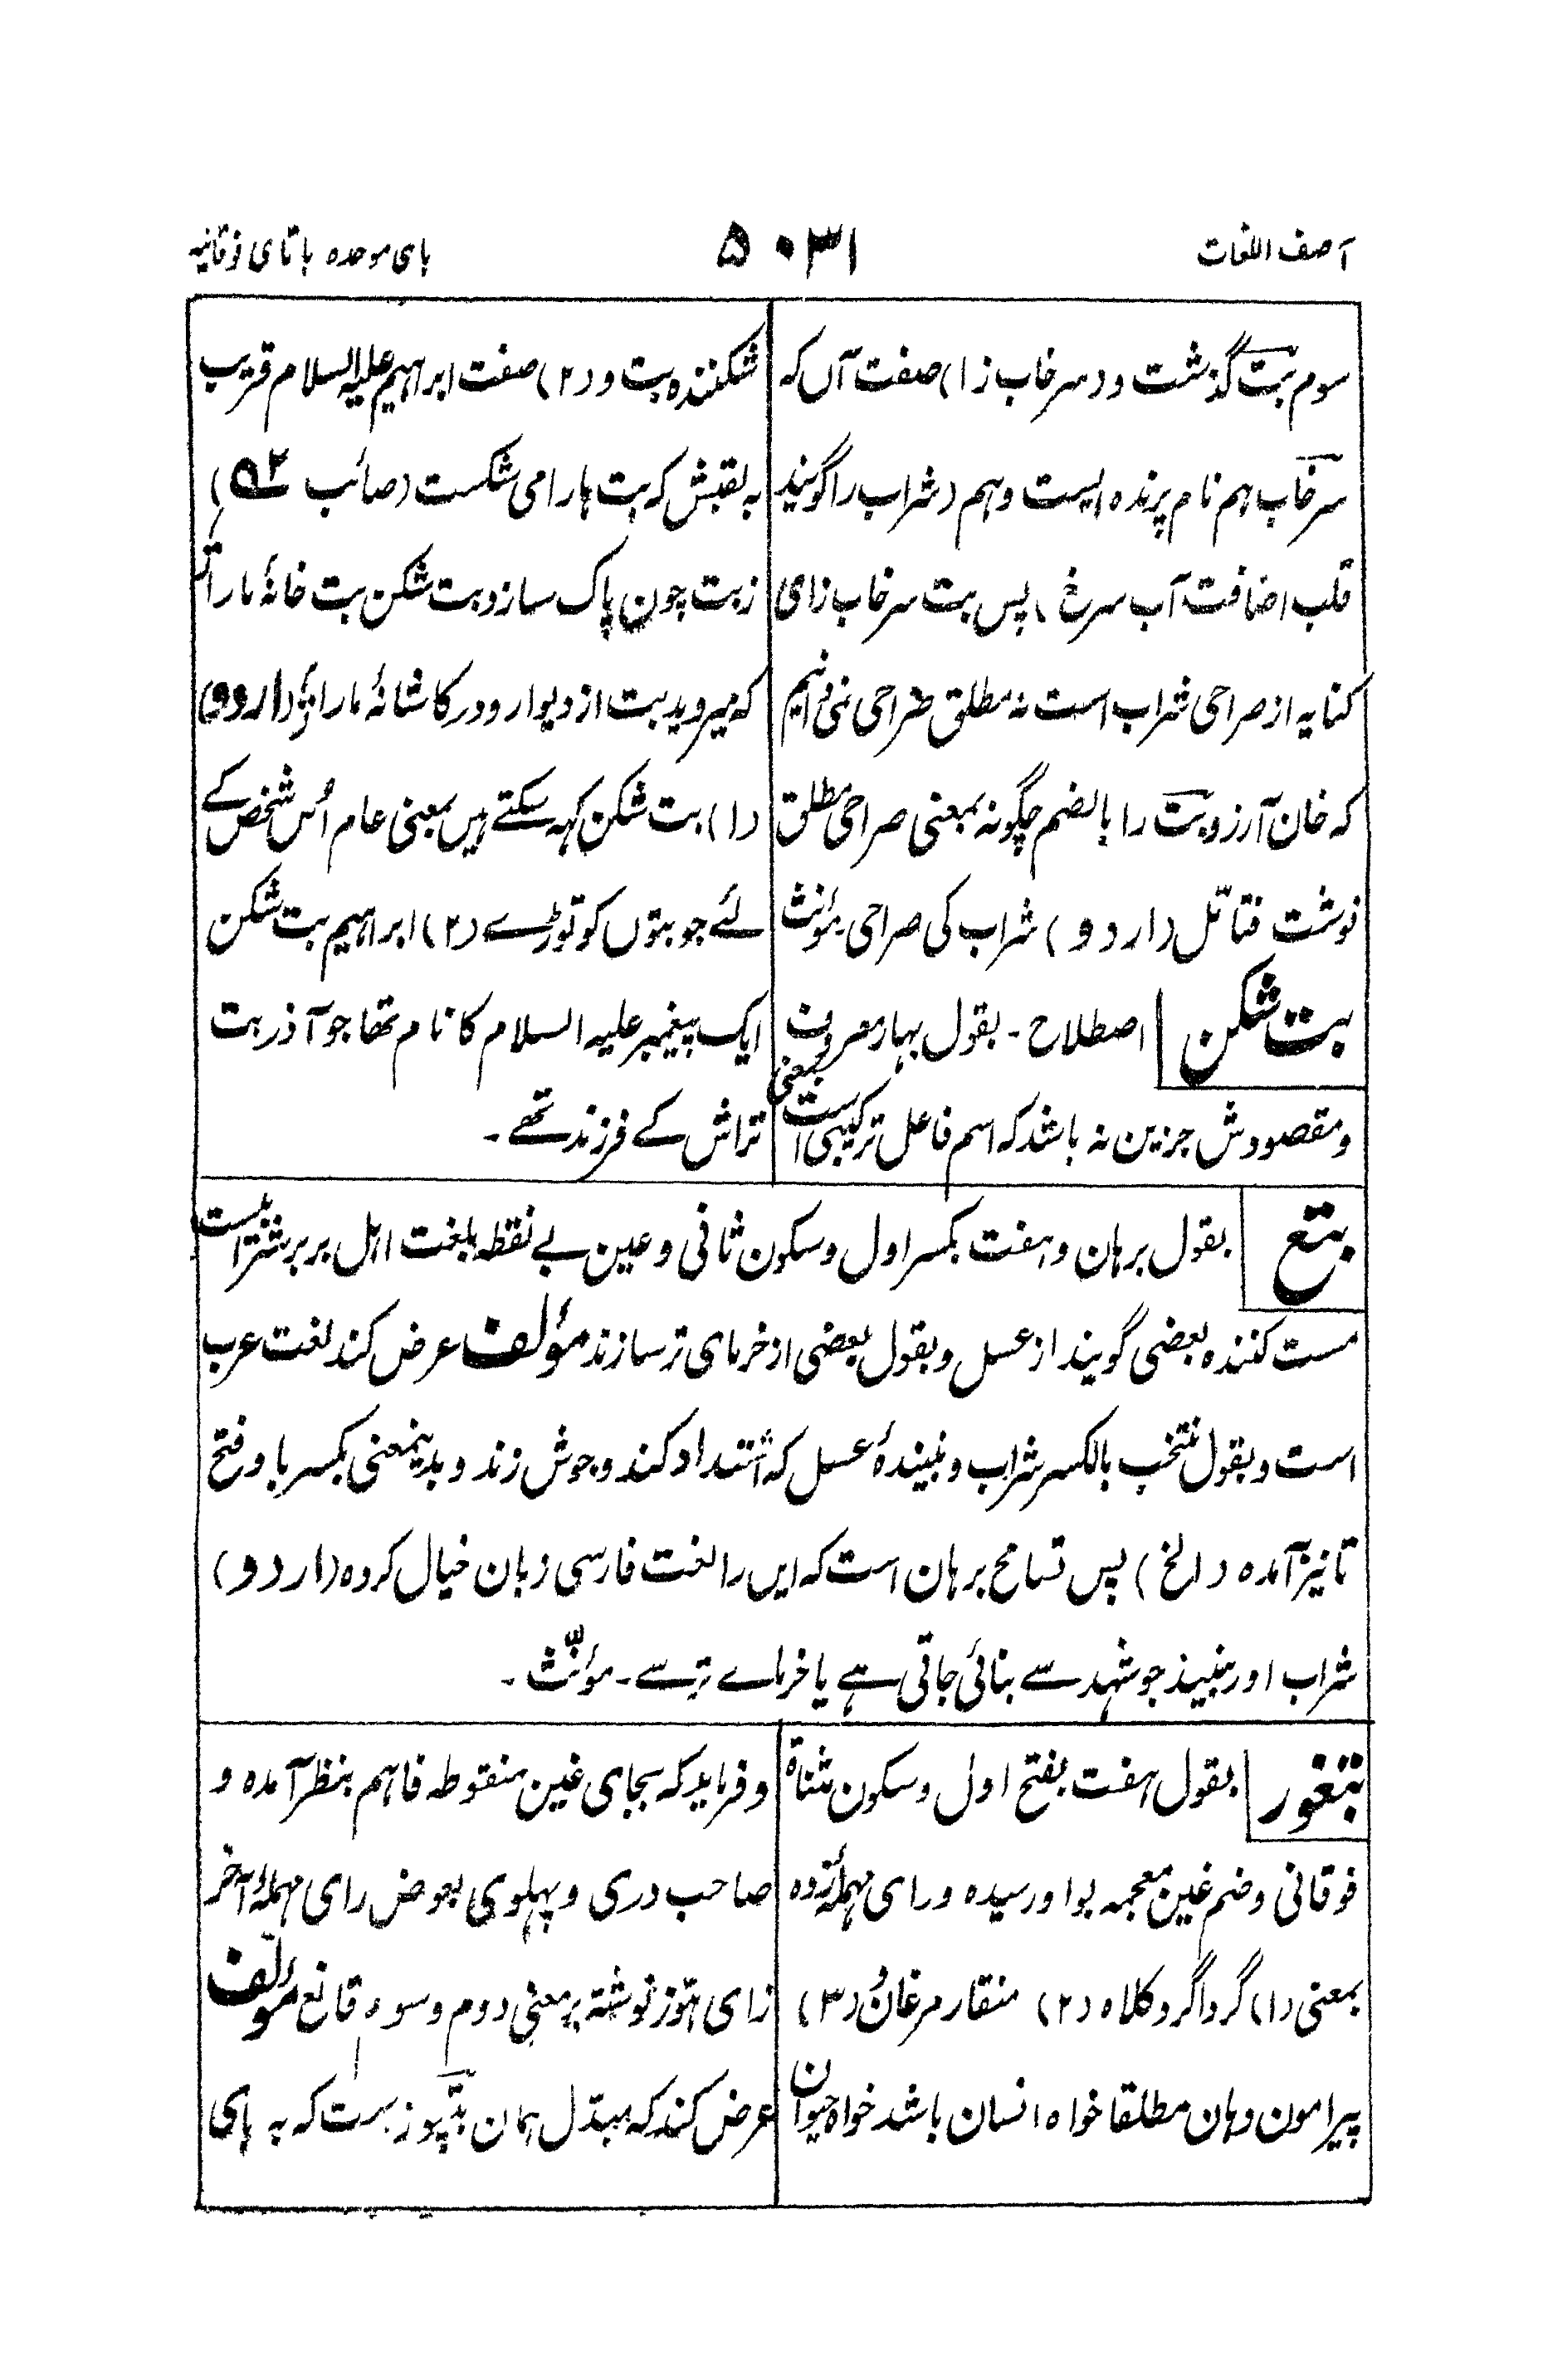 آصف اللغات
۵۰۳۱
بای موحده با تای فوقانیه
سوم بت گذشت و (سرخاب زا) صفت آں که
سرخاب هم نام پرنده ایست و هم (شراب را گویند
قلب اضافت آب سرخ، پس بت سرخاب زای
کنایه از صراحی شراب است نه مطلق صراحی نمی دانیم
که خان آرزو بت را بالضم چگونه بمعنی صراحی مطلق
نوشت فتاتل (اردو) شراب کی صراحی مؤنث
بت شکن | اصطلاح - بقول بهار معروف
و مقصودش جزین نه باشد که اسم فاعل ترکیبی است بمعنی
شکننده بت و (۲) صفت ابراهیم علیه السلام قریب
به لقبش که بت ها را می شکست (صائب ۵۲)
ز بت چون پاک سازد بت شکن بت خانهٔ ما را
که میروید بت از دیوار و در کاشانهٔ ما را (اردو)
(۱) بت شکن کہہ سکتے ہیں بمعنی عام اُس شخص کے
لئے جو بتوں کو توڑے (۲) ابراہیم بت شکن
ایک پیغمبر علیہ السلام کا نام تھا جو آذر بت
تراش کے فرزند تھے -
بتع | بقول برهان و هفت بکسر اول و سکون ثانی و عین بے نقطه بلغت اهل بربر شرابیست
مست کننده بعضی گویند از عسل و بقول بعضی از خرمای تر سازند مؤلف عرض کند لغت عرب
است و بقول منتخب بالکسر شراب و نبیذهٔ عسل که اشتداد کند و جوش زند و بدینمعنی بکسر با و فتح
تا نیز آمده (الخ) پس تسامح برهان است که ایں را لغت فارسی زبان خیال کرده (اردو)
شراب اور نبیذ جو شہد سے بنائی جاتی ہے یا خرماے تر سے - مؤنّث -
بتغور | بقول هفت بفتح اول و سکون مثناة
فوقانی و ضم غین معجمه بواو رسیده و رای مهمله زده
بمعنی (۱) گرداگرد کلاه (۲) منقار مرغان و (۳)
پیرامون دهان مطلقا خواه انسان باشد خواه حیوان
و فرماید که بجای غین منقوطه فا هم بنظر آمده و
صاحب دری و پهلوی بعوض رای مهملهٔ آخر
زای هوّز نوشته بر معنی دوم و سوم قانع مؤلف
عرض کند که مبدّل همان بتپوز ست که به بای